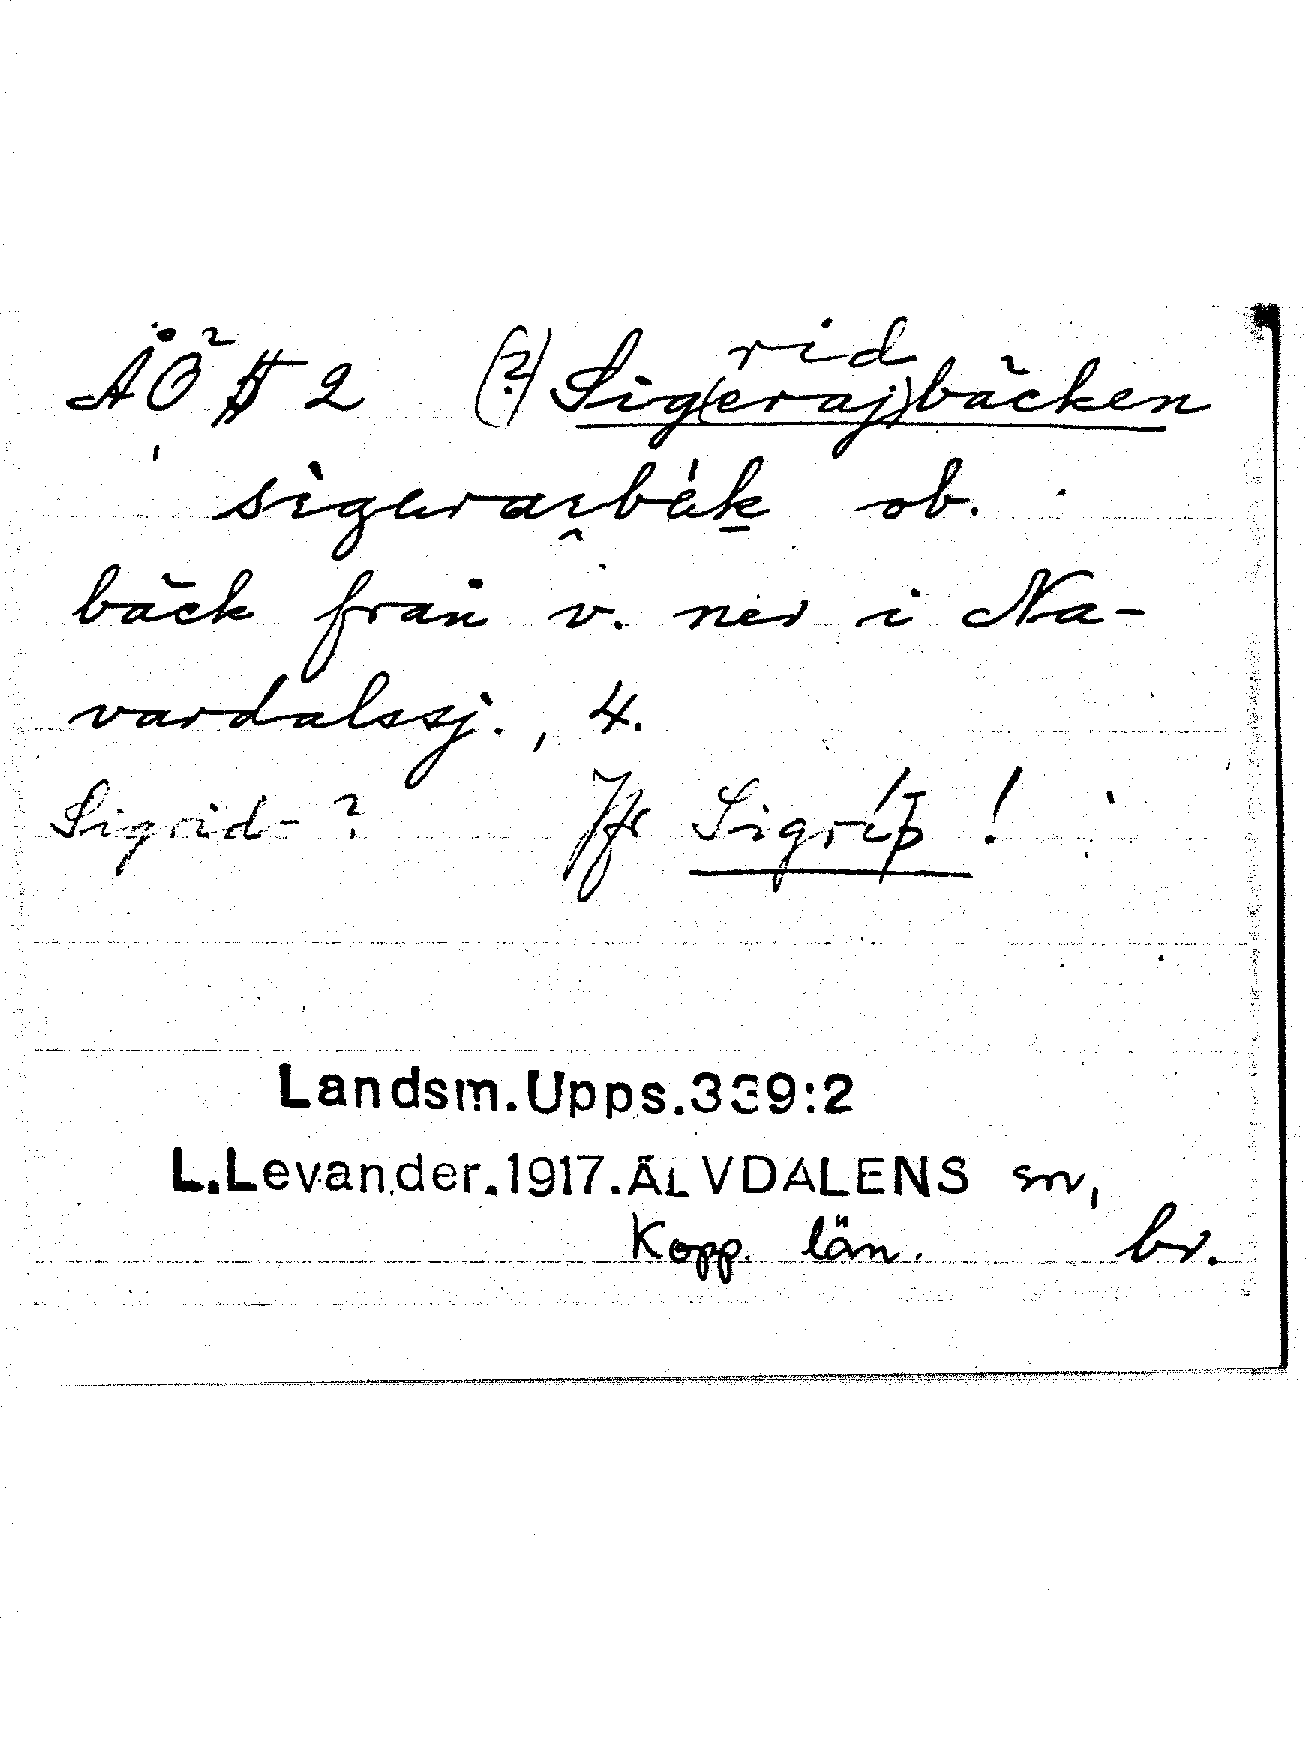 ÄÖ 2 (?) Sig(eraj)bäcken
rid
sigɯraɪ̯bäk ob.
bäck från v. ner i Na-
vardalssj., 4.
Sigrid-? Jfr Sigríþ !
Landsm.Upps.339:2
L.Levander.1917.ÄLVDALENS sn,
Kopp. län. br.